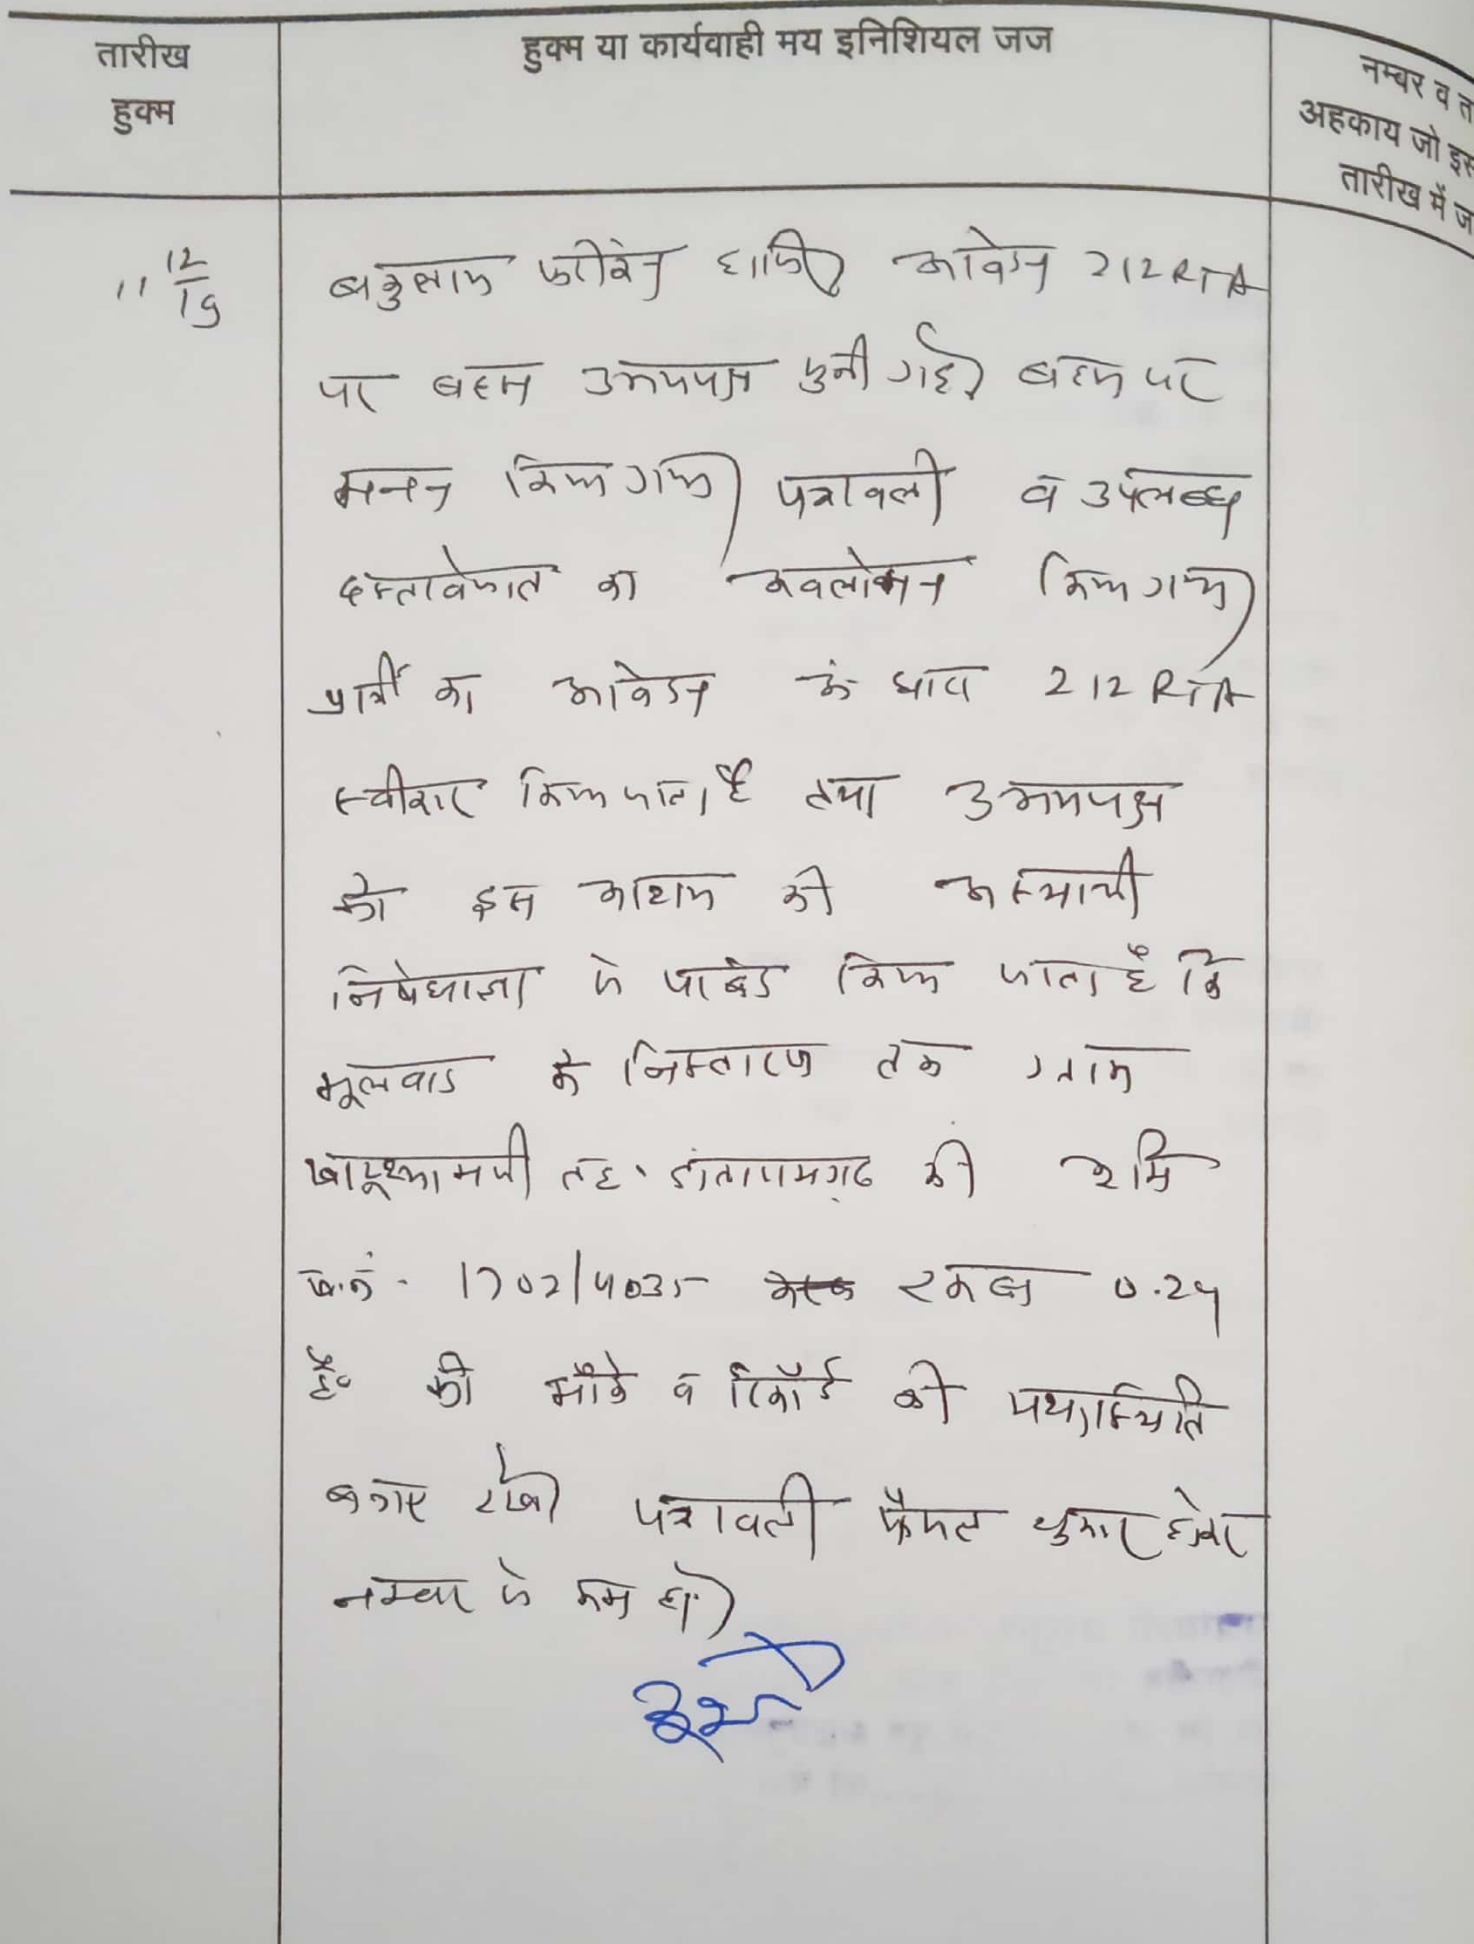 तारीख
हुक्म
हुक्म या कार्यवाही मय इनिशियल जज
नम्बर व त
अहकाय जो इस
तारीख में ज
11 12/19
बकुलाय फरीकेन हाजिर। आवेदन 212 RTA
पर बहस उभयपक्ष सुनी गई। बहस पर
मनन किया गया। पत्रावली व उपलब्ध
दस्तावेजात का अवलोकन किया गया।
प्रार्थी का आवेदन धारा 212 RTA
स्वीकार किया जाता है तथा उभयपक्ष
को इस आशय की अस्थायी
निषेधाज्ञा से पाबंद किया जाता है कि
मूलवाद के निस्तारण तक ग्राम
खाटूश्यामजी तह. दांतारामगढ की भूमि
ख.नं. 1702/4035 रकबा 0.24
है० की मौके व रिकॉर्ड की यथास्थिति
बनाए रखें। पत्रावली फैसल शुमार होकर
नम्बर से कम हो।